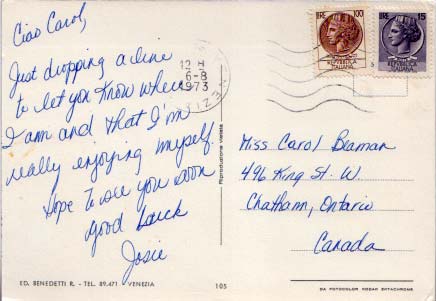 Ciao Carol,
Just dropping a line
to let you know where
I am and that I'm
really enjoying myself.
Hope to see you soon
good luck
Josie
12 H
6-8
1973
VENEZIA
LIRE 100
REPVBBLICA
ITALIANA
LIRE 15
REPVBBLICA
ITALIANA
Riproduzione vietata
Miss Carol Beaman
496 King St. W.
Chatham, Ontario
Canada
ED. BENEDETTI R. - TEL. 89.471 - VENEZIA
105
DA FOTOCOLOR KODAK EKTACHROME